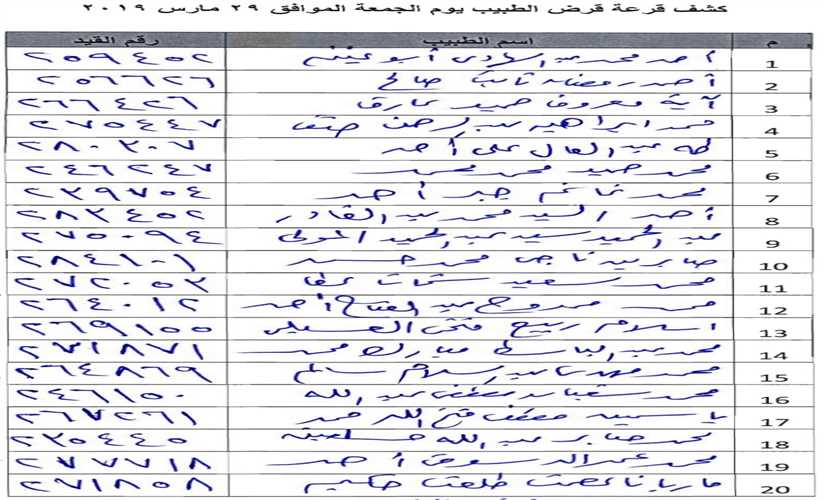 كشف قرعة قرض الطبيب يوم الجمعة الموافق ٢٩ مارس ٢٠١٩
م اسم الطبيب رقم القيد
1 أحمد محمد عبد الهادى أبو عيشه ٢٥٩٤٥٢
2 أحمد رمضان ثابت صالح ٢٥٦٦٢٦
3 آية معروف حميد ٢٦٦٤٢٦
4 محمد ابراهيم عبد الرحمن ٢٧٥٤٤٧
5 طه عبد العال على أحمد ٢٨٠٢٠٧
6 محمد صيد محمد محمد ٢٤٦٢٤٧
7 محمد غانم جبر أحمد ٢٣٩٧٥٤
8 أحمد السيد محمد عبد القادر ٢٨٣٤٥٢
9 عبد الحميد سيد عبد الحميد المولى ٢٧٥٠٩٤
10 صابرين ناجى محمد ٢٨٤١٠١
11 محمد سعيد شحات عطا ٢٧٢٠٥٣
12 محمد ممدوح عبد الفتاح أحمد ٢٦٤٠١٢
13 اسلام ربيع فتحى العسيلى ٢٦٩١٥٥
14 محمد عبد الباسط مبارك محمد ٢٧١٨٧١
15 محمد مهدى عبد السلام سالم ٢٦٤٨٦٩
16 محمد شعبان مصطفى عبد الله ٢٤٦١٥٠
17 ياسمينه مصطفى فتح الله حمد ٢٦٧٢٦١
18 محمد صابر عبد الله ٢٣٥٤٤٥
19 محمد عز الدسوقى أحمد ٢٧٧٧١٨
20 ماريانا عصمت طلعت حكيم ٢٧١٨٥٨